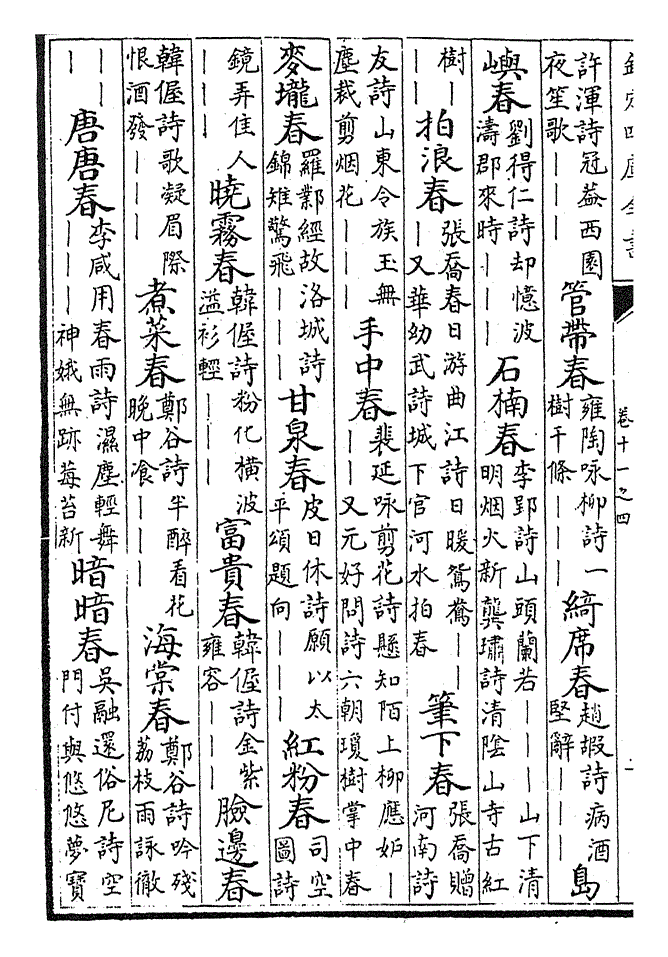 欽定四庫全書
卷十一之四
許渾詩冠蓋西園夜笙歌｜｜｜管帶春雍陶咏栁詩一樹千條｜｜｜綺席春趙嘏詩病酒堅辭｜｜｜島
嶼春劉得仁詩却憶波濤郡來時｜｜｜石楠春李郢詩山頭蘭若｜｜｜山下清明烟火新龔璛詩清陰山寺古紅
樹｜拍浪春張喬春日游曲江詩日暖鴛鴦｜｜｜又華幼武詩城下官河水拍春筆下春張喬贈河南詩
友詩山東令族玉無塵裁剪烟花｜｜｜手中春裴延咏剪花詩懸知陌上栁應妒｜｜｜又元好問詩六朝瓊樹掌中春
麥壠春羅鄴經故洛城詩錦雉驚飛｜｜｜甘泉春皮日休詩願以太平頌題向｜｜｜紅粉春司空圖詩
鏡弄佳人｜｜｜曉霧春韓偓詩粉化橫波溢衫輕｜｜｜富貴春韓偓詩金紫雍容｜｜｜臉邊春
韓偓詩歌凝眉際恨酒發｜｜｜煮菜春鄭谷詩半醉看花晩中飡｜｜｜海棠春鄭谷詩吟殘荔枝雨詠徹
｜｜｜唐唐春李咸用春雨詩濕塵輕舞｜｜｜神娥無跡莓苔新暗暗春吳融還俗尼詩空門付與悠悠夢寶